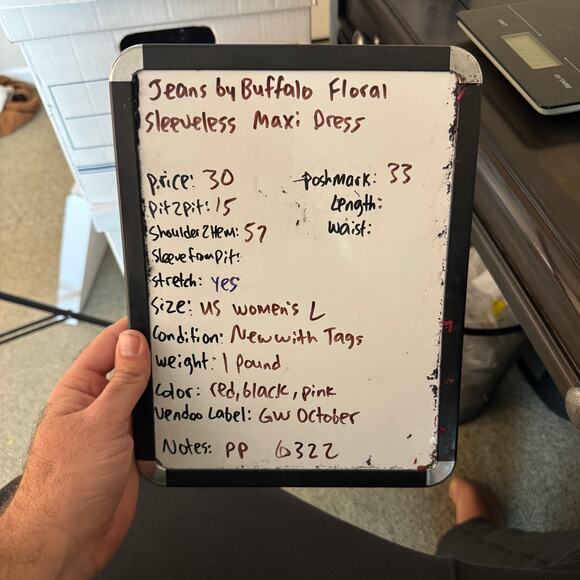 Jeans by Buffalo Floral
Sleeveless Maxi Dress
price: 30 poshmark: 33
pit2pit: 15 Length:
Shoulder2Hem: 57 Waist:
Sleeve from pit:
stretch: yes
Size: US women's L
Condition: New with Tags
weight: 1 pound
Color: red, black, pink
Vendoo Label: GW October
Notes: PP 6322